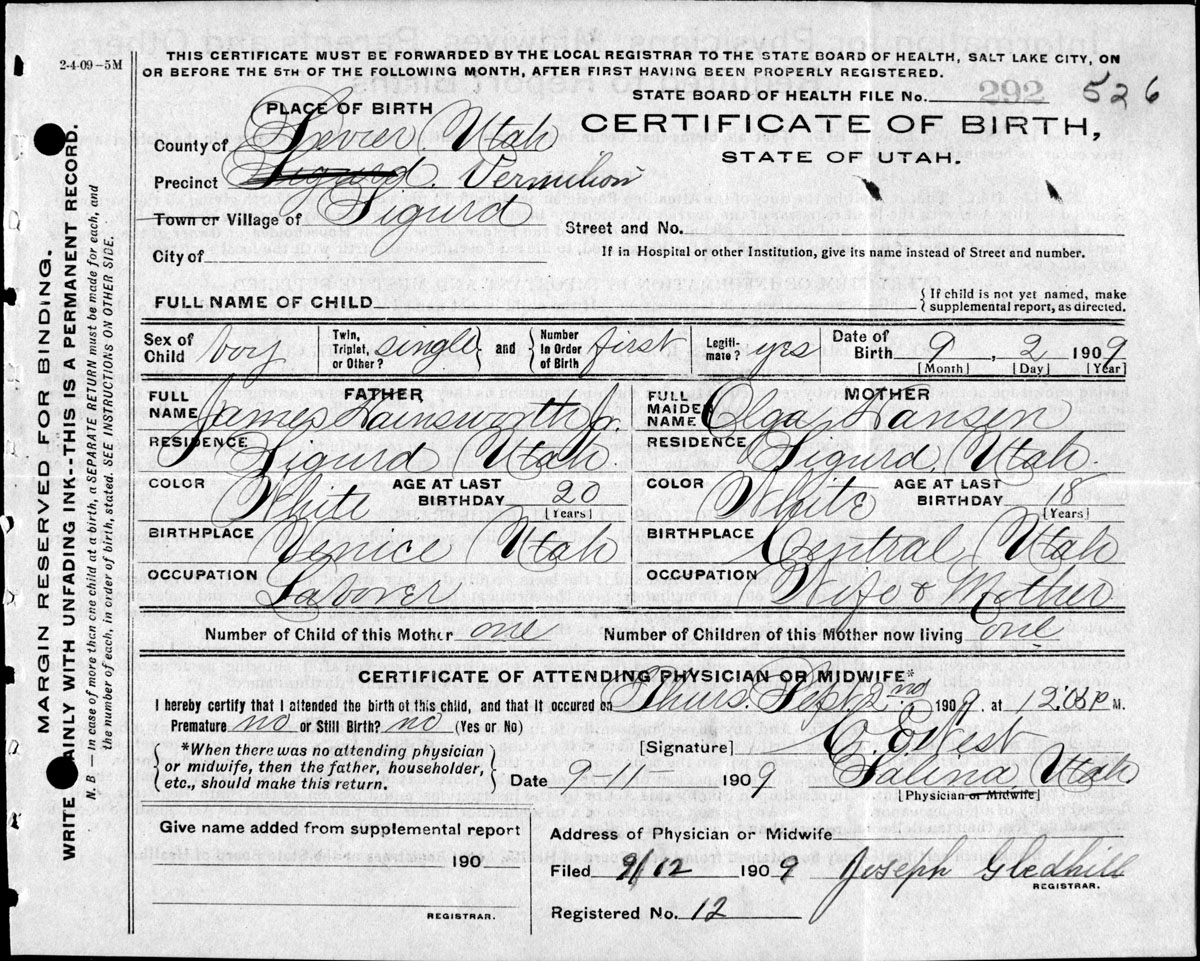 2-4-09-5M
THIS CERTIFICATE MUST BE FORWARDED BY THE LOCAL REGISTRAR TO THE STATE BOARD OF HEALTH, SALT LAKE CITY, ON
OR BEFORE THE 5TH OF THE FOLLOWING MONTH, AFTER FIRST HAVING BEEN PROPERLY REGISTERED.
STATE BOARD OF HEALTH FILE No. 292 526
PLACE OF BIRTH
CERTIFICATE OF BIRTH,
STATE OF UTAH.
County of Sevier Utah
Precinct Sigurd. Vermilion
Town or Village of Sigurd
Street and No.
City of
If in Hospital or other Institution, give its name instead of Street and number.
FULL NAME OF CHILD
{If child is not yet named, make
supplemental report, as directed.
Sex of Child boy Twin, Triplet, or Other? single } and { Number In Order of Birth first Legiti-mate? yes Date of Birth 9, 2 1909
[Month] [Day] [Year]
FATHER
FULL NAME James Hainsworth Jr.
RESIDENCE Sigurd Utah.
COLOR White AGE AT LAST BIRTHDAY 20
[Years]
BIRTHPLACE Venice Utah
OCCUPATION Laborer
MOTHER
FULL MAIDEN NAME Olga Hansen
RESIDENCE Sigurd, Utah.
COLOR White AGE AT LAST BIRTHDAY 18
[Years]
BIRTHPLACE Central Utah
OCCUPATION Wife & Mother
Number of Child of this Mother one Number of Children of this Mother now living one
CERTIFICATE OF ATTENDING PHYSICIAN OR MIDWIFE*
I hereby certify that I attended the birth of this child, and that it occured on Thurs. Sept. 2nd, 1909, at 12.05P M.
Premature no or Still Birth? no (Yes or No)
*When there was no attending physician
or midwife, then the father, householder,
etc., should make this return.
[Signature] West
Date 9-11- 1909 Salina Utah
[Physician or Midwife]
Give name added from supplemental report
190
REGISTRAR.
Address of Physician or Midwife
Filed 9/12 1909 Joseph Gledhill
REGISTRAR.
Registered No. 12
MARGIN RESERVED FOR BINDING.
WRITE AINLY WITH UNFADING INK--THIS IS A PERMANENT RECORD.
N. B — In case of more than one child at a birth, a SEPARATE RETURN must be made for each, and
the number of each, in order of birth, stated. SEE INSTRUCTIONS ON OTHER SIDE.